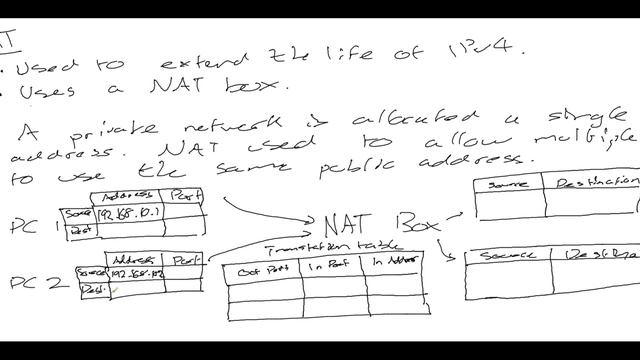 · Used to extend the life of IPv4.
· Uses a NAT box.
A private network is allocated a single
address. NAT used to allow multiple
to use the same public address.
Address Port
PC 1 Source 192.168.10.1
Dest
NAT Box
Source Destination
Translation table
Address Port
PC 2 Source 192.168.10.2
Dest.
Out Port In Port In Address
Source